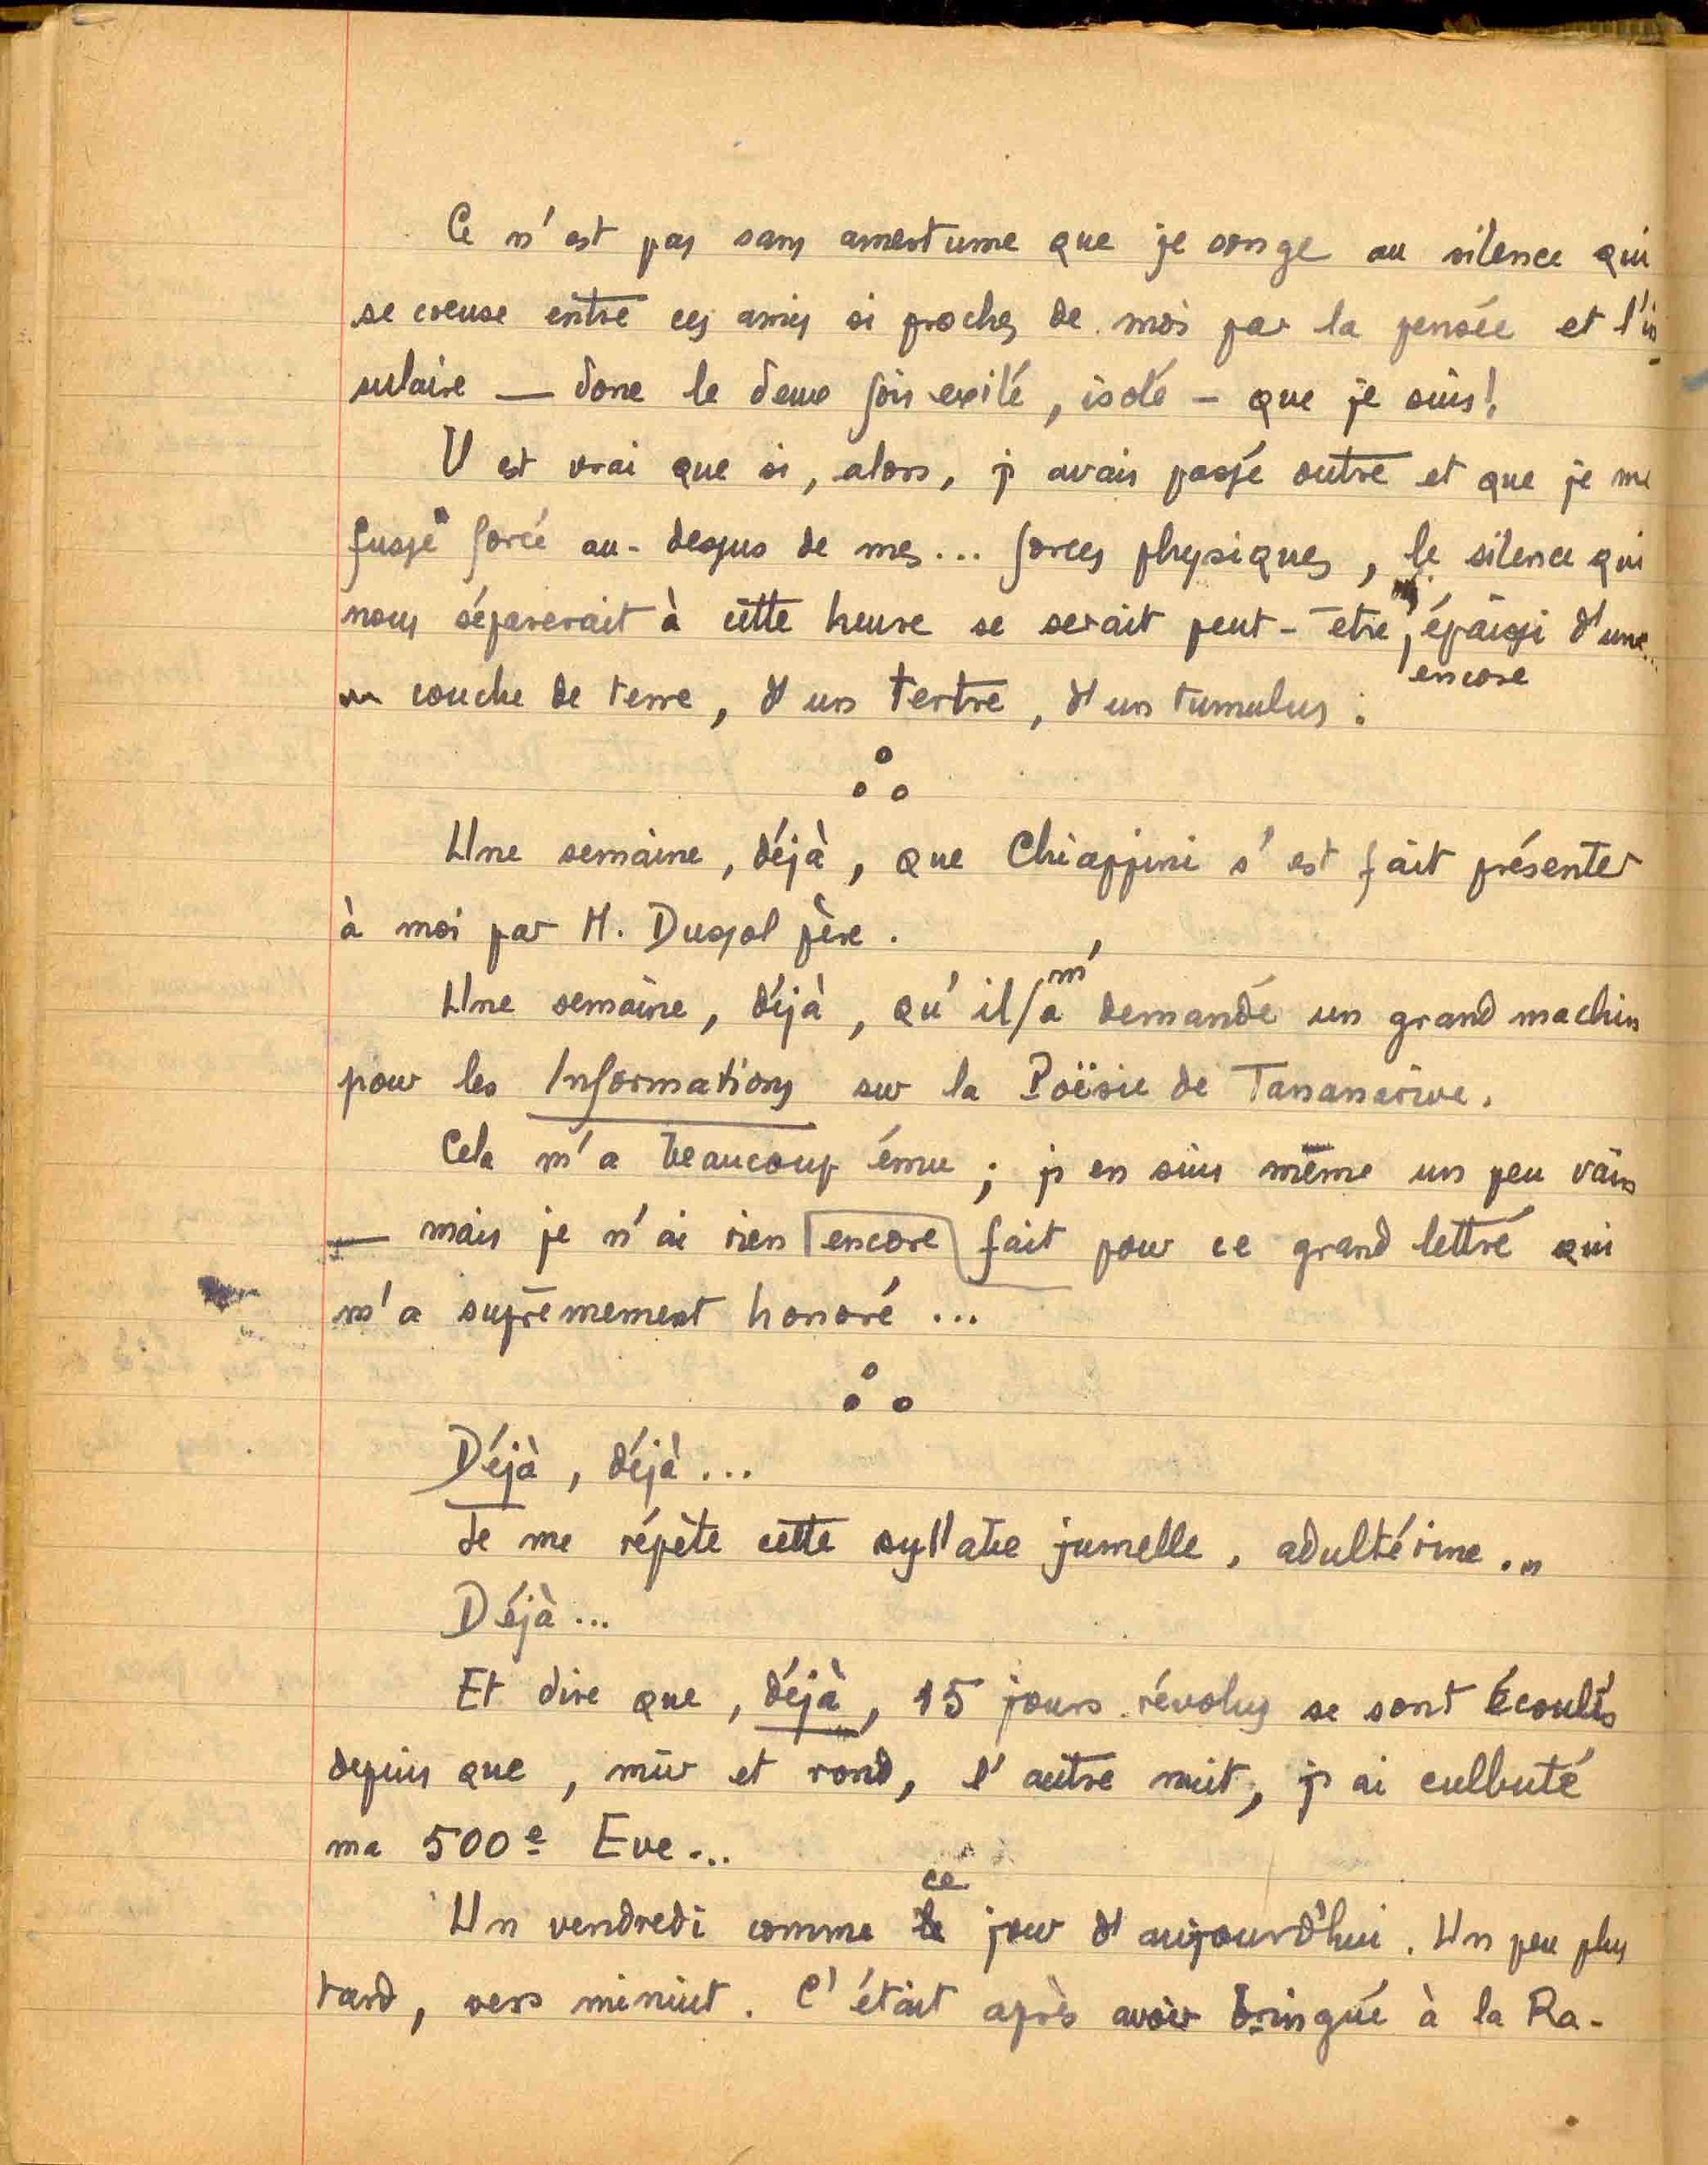 Ce n'est pas sans amertume que je songe au silence qui
se creuse entre ces amis si proches de moi par la pensée et l'in-
sulaire — donc le deux fois exilé, isolé – que je suis!
Il est vrai que si, alors, j'avais passé outre et que je me
fusse forcé au-dessus de mes... forces physiques, le silence qui
nous séparerait à cette heure se serait peut-être, encore épaissi d'une...
couche de terre, d'un tertre, d'un tumulus.
Une semaine, déjà, que Chiappini s'est fait présenter
à moi par M. Dussol père.
Une semaine, déjà, qu'il m'a demandé un grand machin
pour les Informations sur la Poësie de Tananarive.
Cela m'a beaucoup ému ; j'en suis même un peu vain
— mais je n'ai rien encore fait pour ce grand lettré qui
m'a suprêmement honoré ...
Déjà, déjà...
Je me répète cette syllabe jumelle, adultérine...
Déjà...
Et dire que, déjà, 15 jours révolus se sont écoulés
depuis que, mûr et rond, l'autre nuit, j'ai culbuté
ma 500e Eve...
Un vendredi comme ce jour d'aujourd'hui. Un peu plus
tard, vers minuit. C'était après avoir bringué à la Ra-